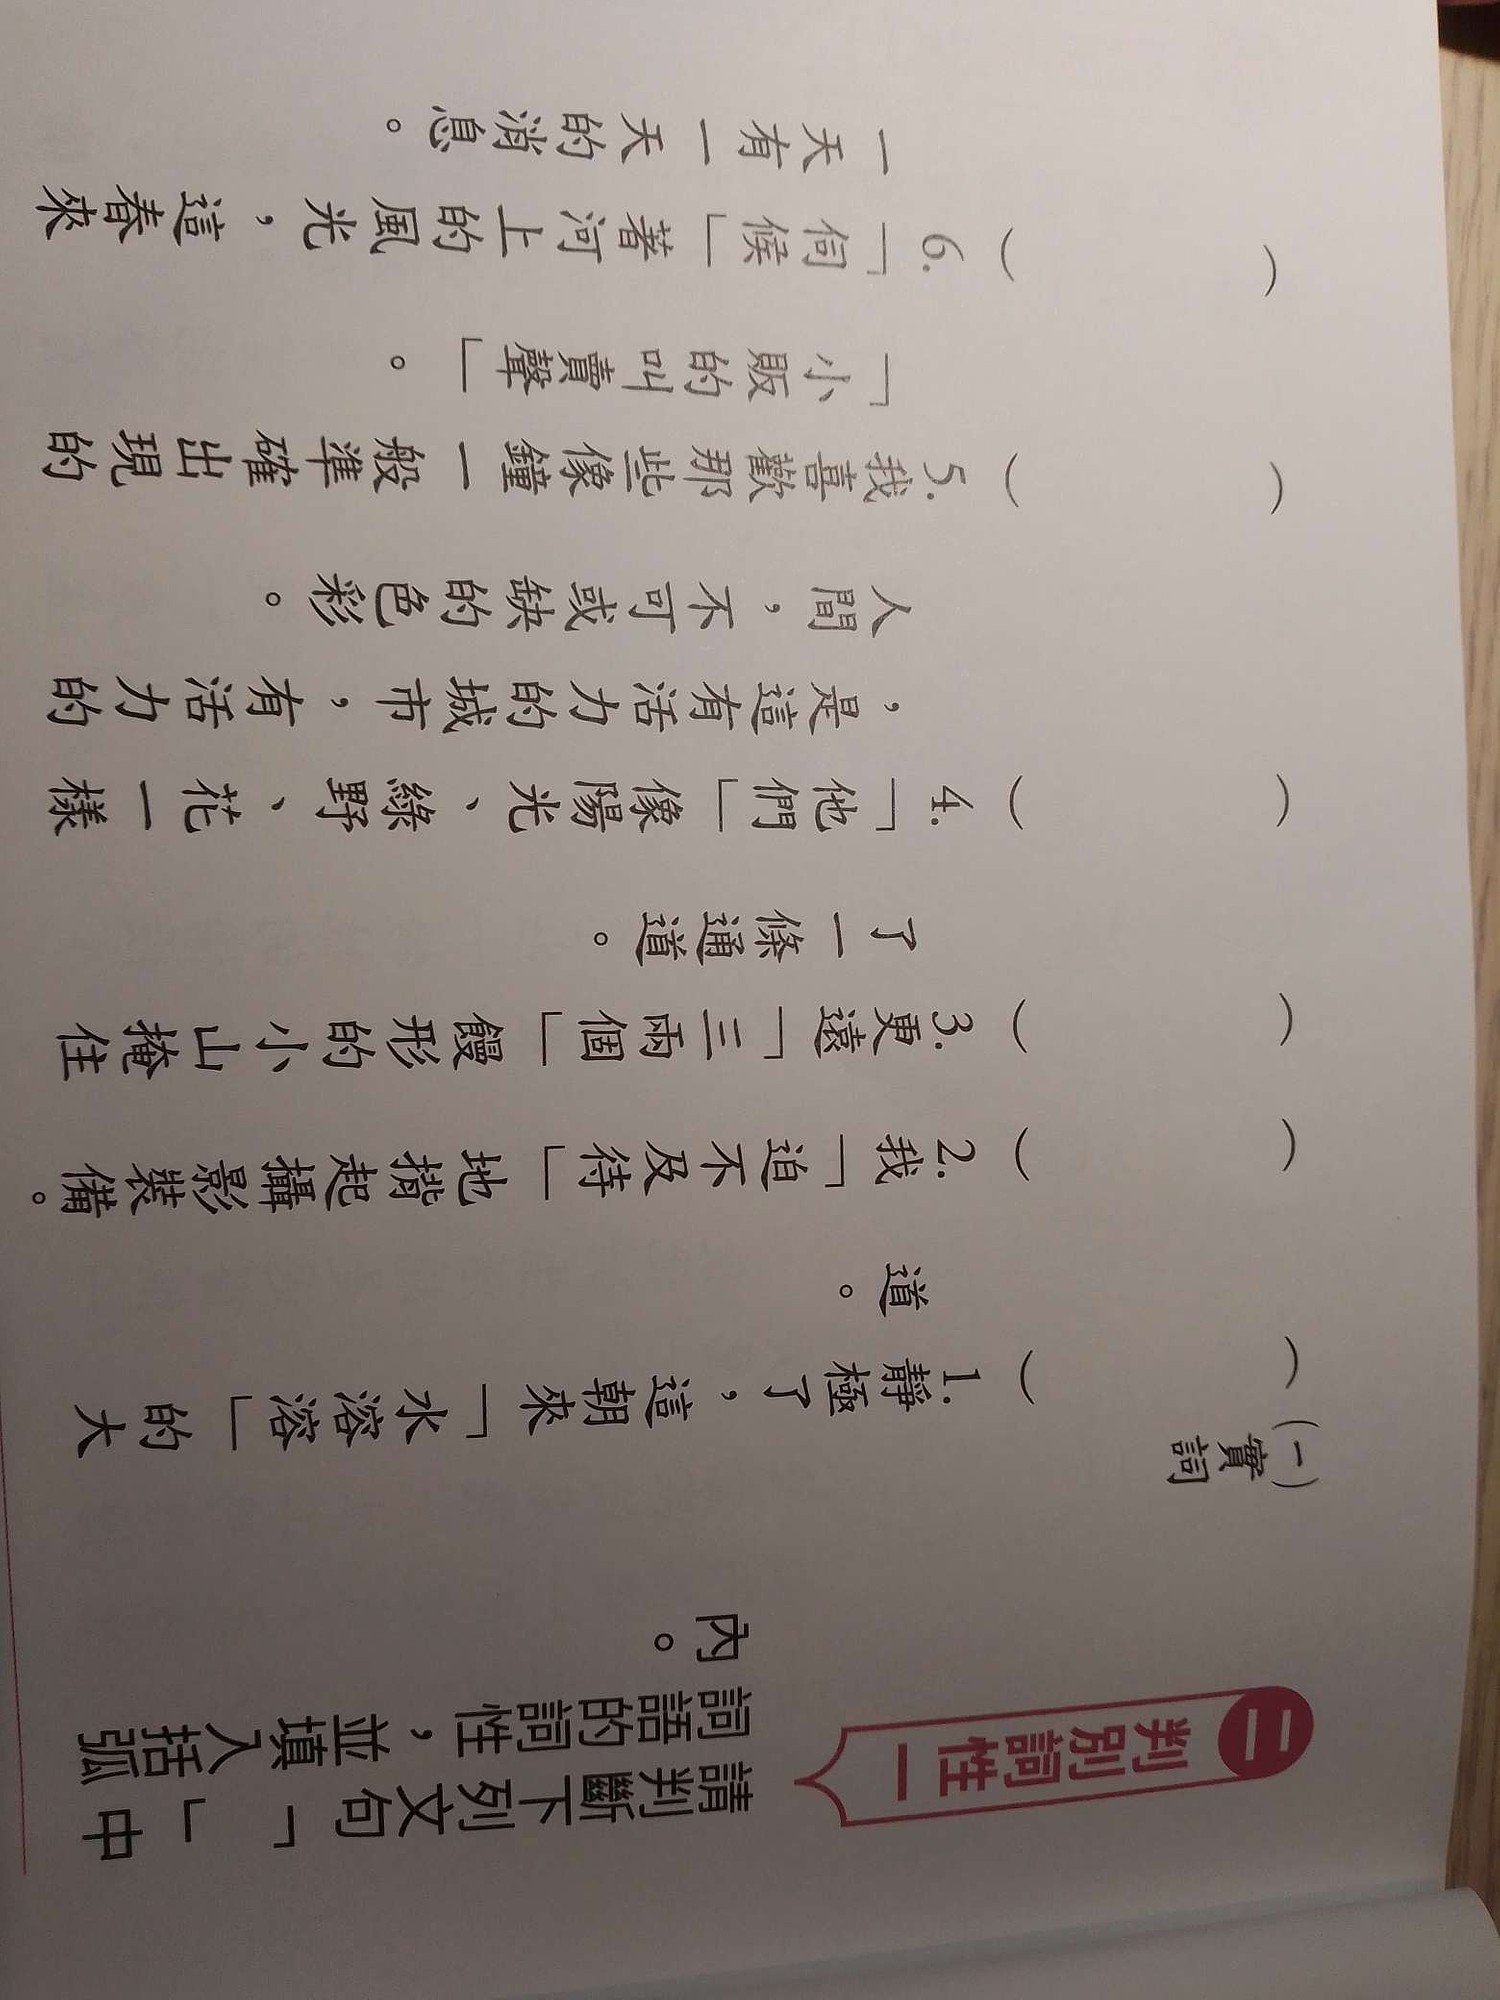 二 判別詞性一
請判斷下列文句「　」中
詞語的詞性，並填入括弧
內。
(一)實詞
（　　　）1.靜極了，這朝來「水溶溶」的大
道。
（　　　）2.我「迫不及待」地揹起攝影裝備。
（　　　）3.更遠「三兩個」饅形的小山掩住
了一條通道。
（　　　）4.「他們」像陽光、綠野、花一樣
，是這有活力的城市，有活力的
人間，不可或缺的色彩。
（　　　）5.我喜歡那些像鐘一般準確出現的
「小販的叫賣聲」。
（　　　）6.「伺候」著河上的風光，這春來
一天有一天的消息。